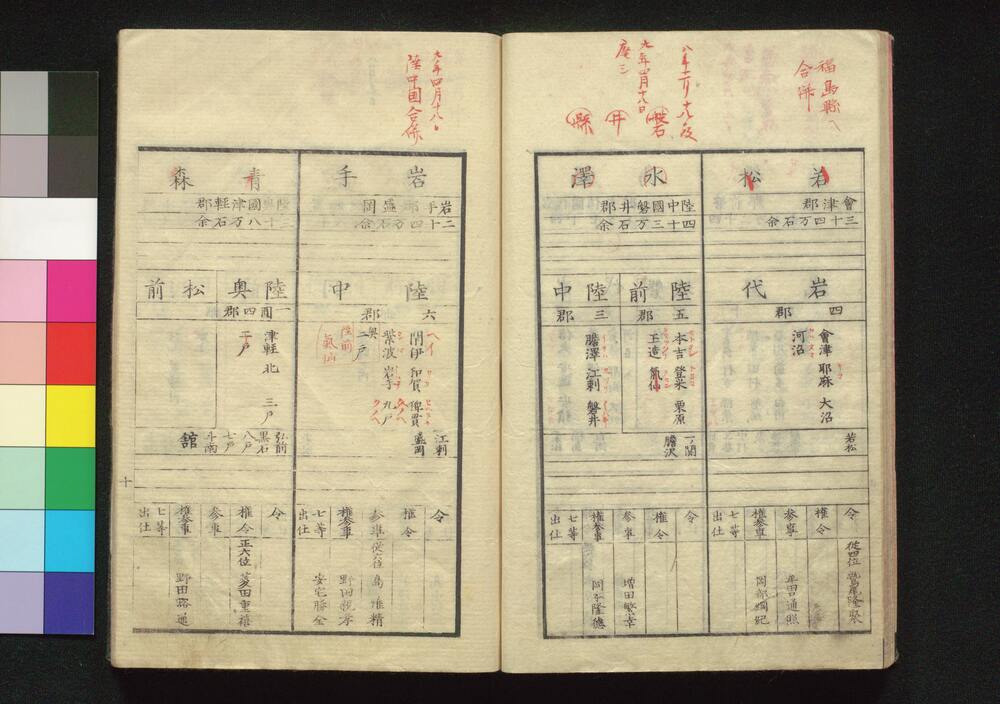 福島縣へ
合併
若松
會津郡
三十四万石余
岩代
四郡
會津 耶麻 大沼
河沼
若松
令
從四位 鷲尾隆聚
權令
参事
權参事
岡部綱紀
七等
出仕
九年四月十八日
磐
井
縣
水澤
陸中國磐井郡
四十三万石余
陸前
五郡
本吉 登米 栗原
玉造 氣仙
陸中
三郡
膽澤 江刺 磐井
一関
膽沢
令
權令
参事
増田繁幸
權参事
岡谷隆徳
七等
出仕
九年四月十八日
陸中国合併
岩手
岩手郡盛岡
二十四万石余
陸中
六郡
閉伊 和賀 稗貫
紫波 岩手 九戸
奥
二戸
陸前
氣仙
江刺
盛岡
令
權令
参事 從六位 島惟精
權参事
七等
出仕
安宅勝全
青森
陸奥國津軽郡
三十八万石余
陸奥
一円四郡
津軽 北 三戸
二戸
松前
弘前
黒石
八戸
七戸
斗南
舘
令
權令 正六位 菱田重禧
参事
權参事
野田豁通
七等
出仕
十